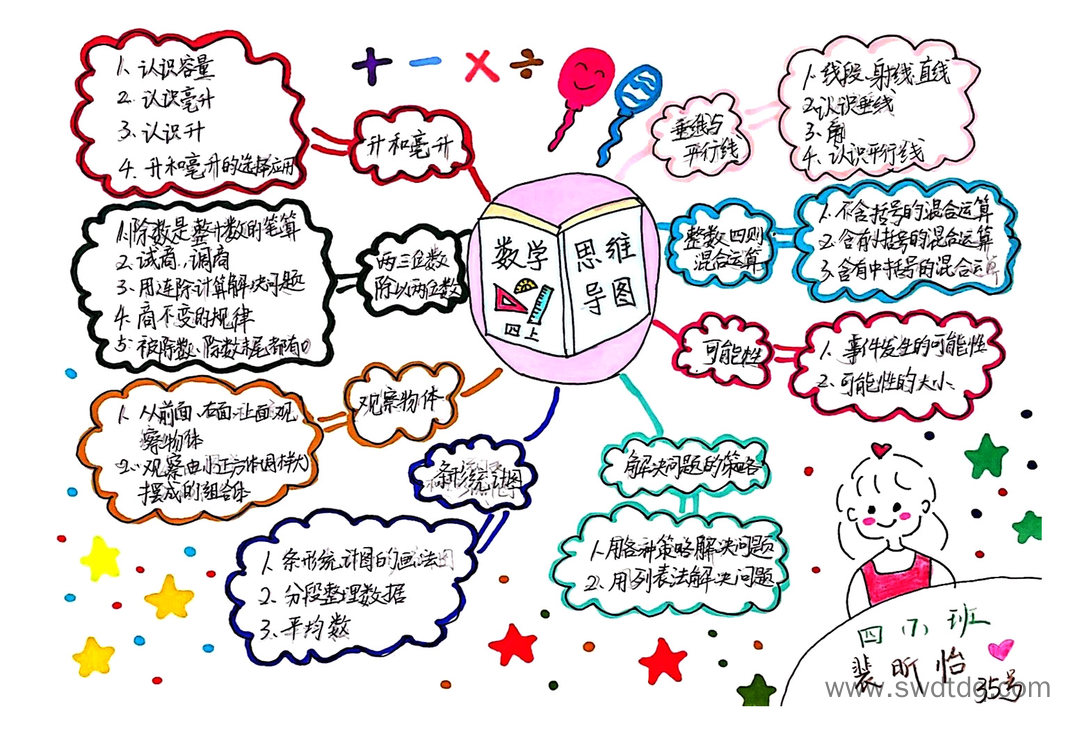 + - × ÷
数学
思维
导图
四上
升和毫升
1. 认识容量
2. 认识毫升
3. 认识升
4. 升和毫升的选择应用
两三位数
除以两位数
1. 除数是整十数的笔算
2. 试商、调商
3. 用连除计算解决问题
4. 商不变的规律
5. 被除数、除数末尾都有0
观察物体
1. 从前面、右面、上面观
察物体
2. 观察由小正方体
摆成的组合体
条形统计图
1. 条形统计图的画法
2. 分段整理数据
3. 平均数
垂线与
平行线
1. 线段、射线、直线
2. 认识垂线
3. 角
4. 认识平行线
整数四则
混合运算
1. 不含括号的混合运算
2. 含有小括号的混合运算
3. 含有中括号的混合运算
可能性
1. 事件发生的可能性
2. 可能性的大小
解决问题的策略
1. 用各种策略解决问题
2. 用列表法解决问题
四(7)班
裴昕怡
35号
www.swdtdq.com